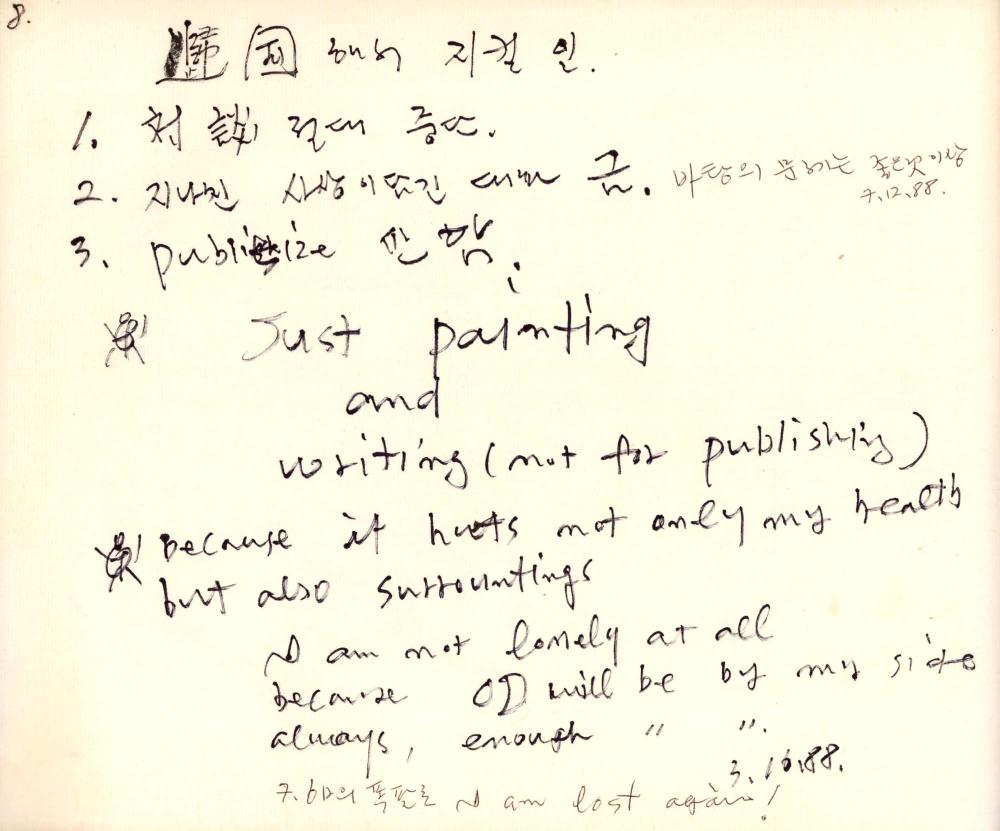 8.
歸国 해서 지킬 일.
1. 対談 절대 중단.
2. 지나친 사상이 대화 금.
이상
7.12.88.
3. publicize 안 함.
Just painting
and
writing (not for publishing)
because it hurts not only my health
but also surrountings
I am not lonely at all
because OD will be by my side
always, enough 〃 〃.
3.16.88.
폭팔로 I am lost again!